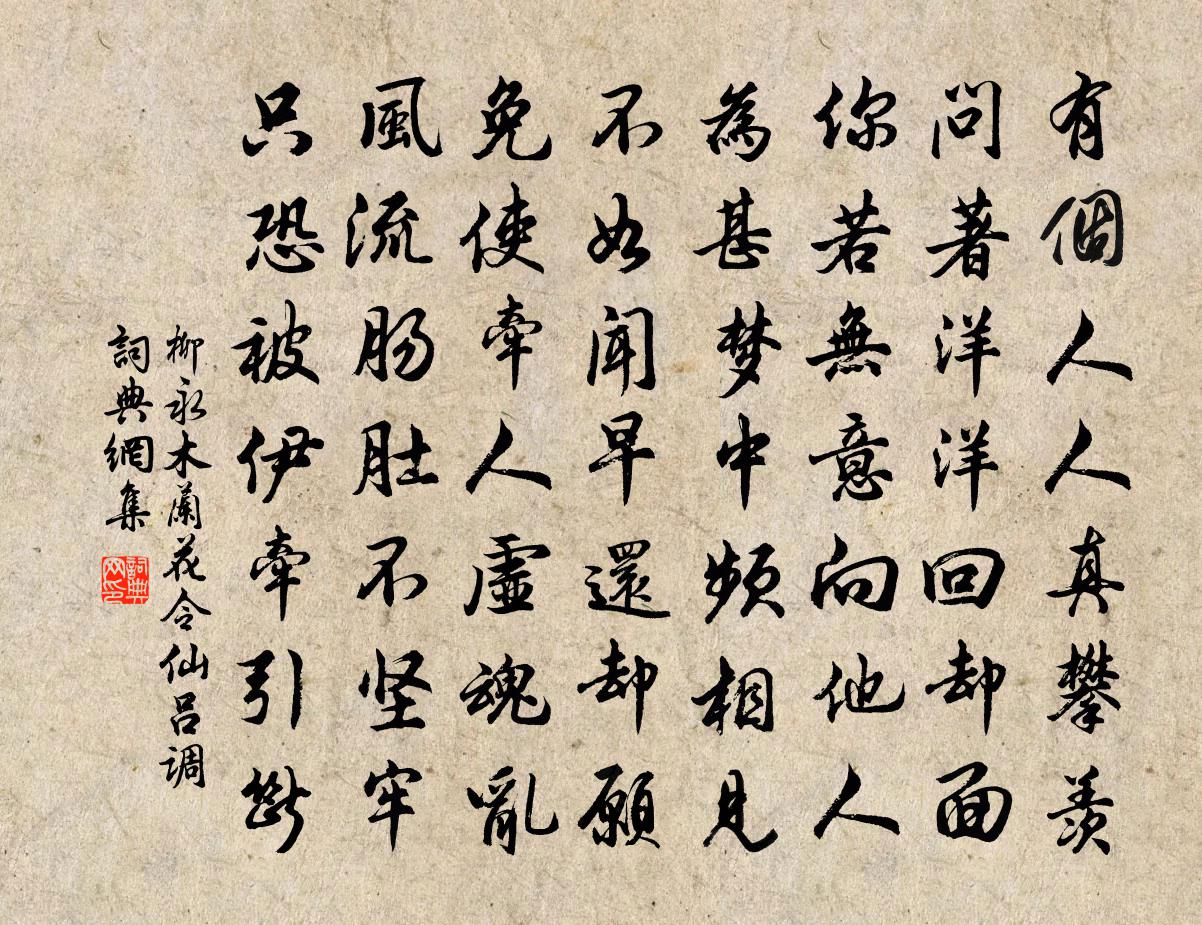 有個人人真攀羨
問著洋洋回却面
你若無意向他人
為甚梦中頻相見
不如闻早還却願
免使牵人虛魂亂
風流肠肚不坚牢
只恐被伊牵引斷
柳永木蘭花令仙呂调
詞典網集
詞典
网印